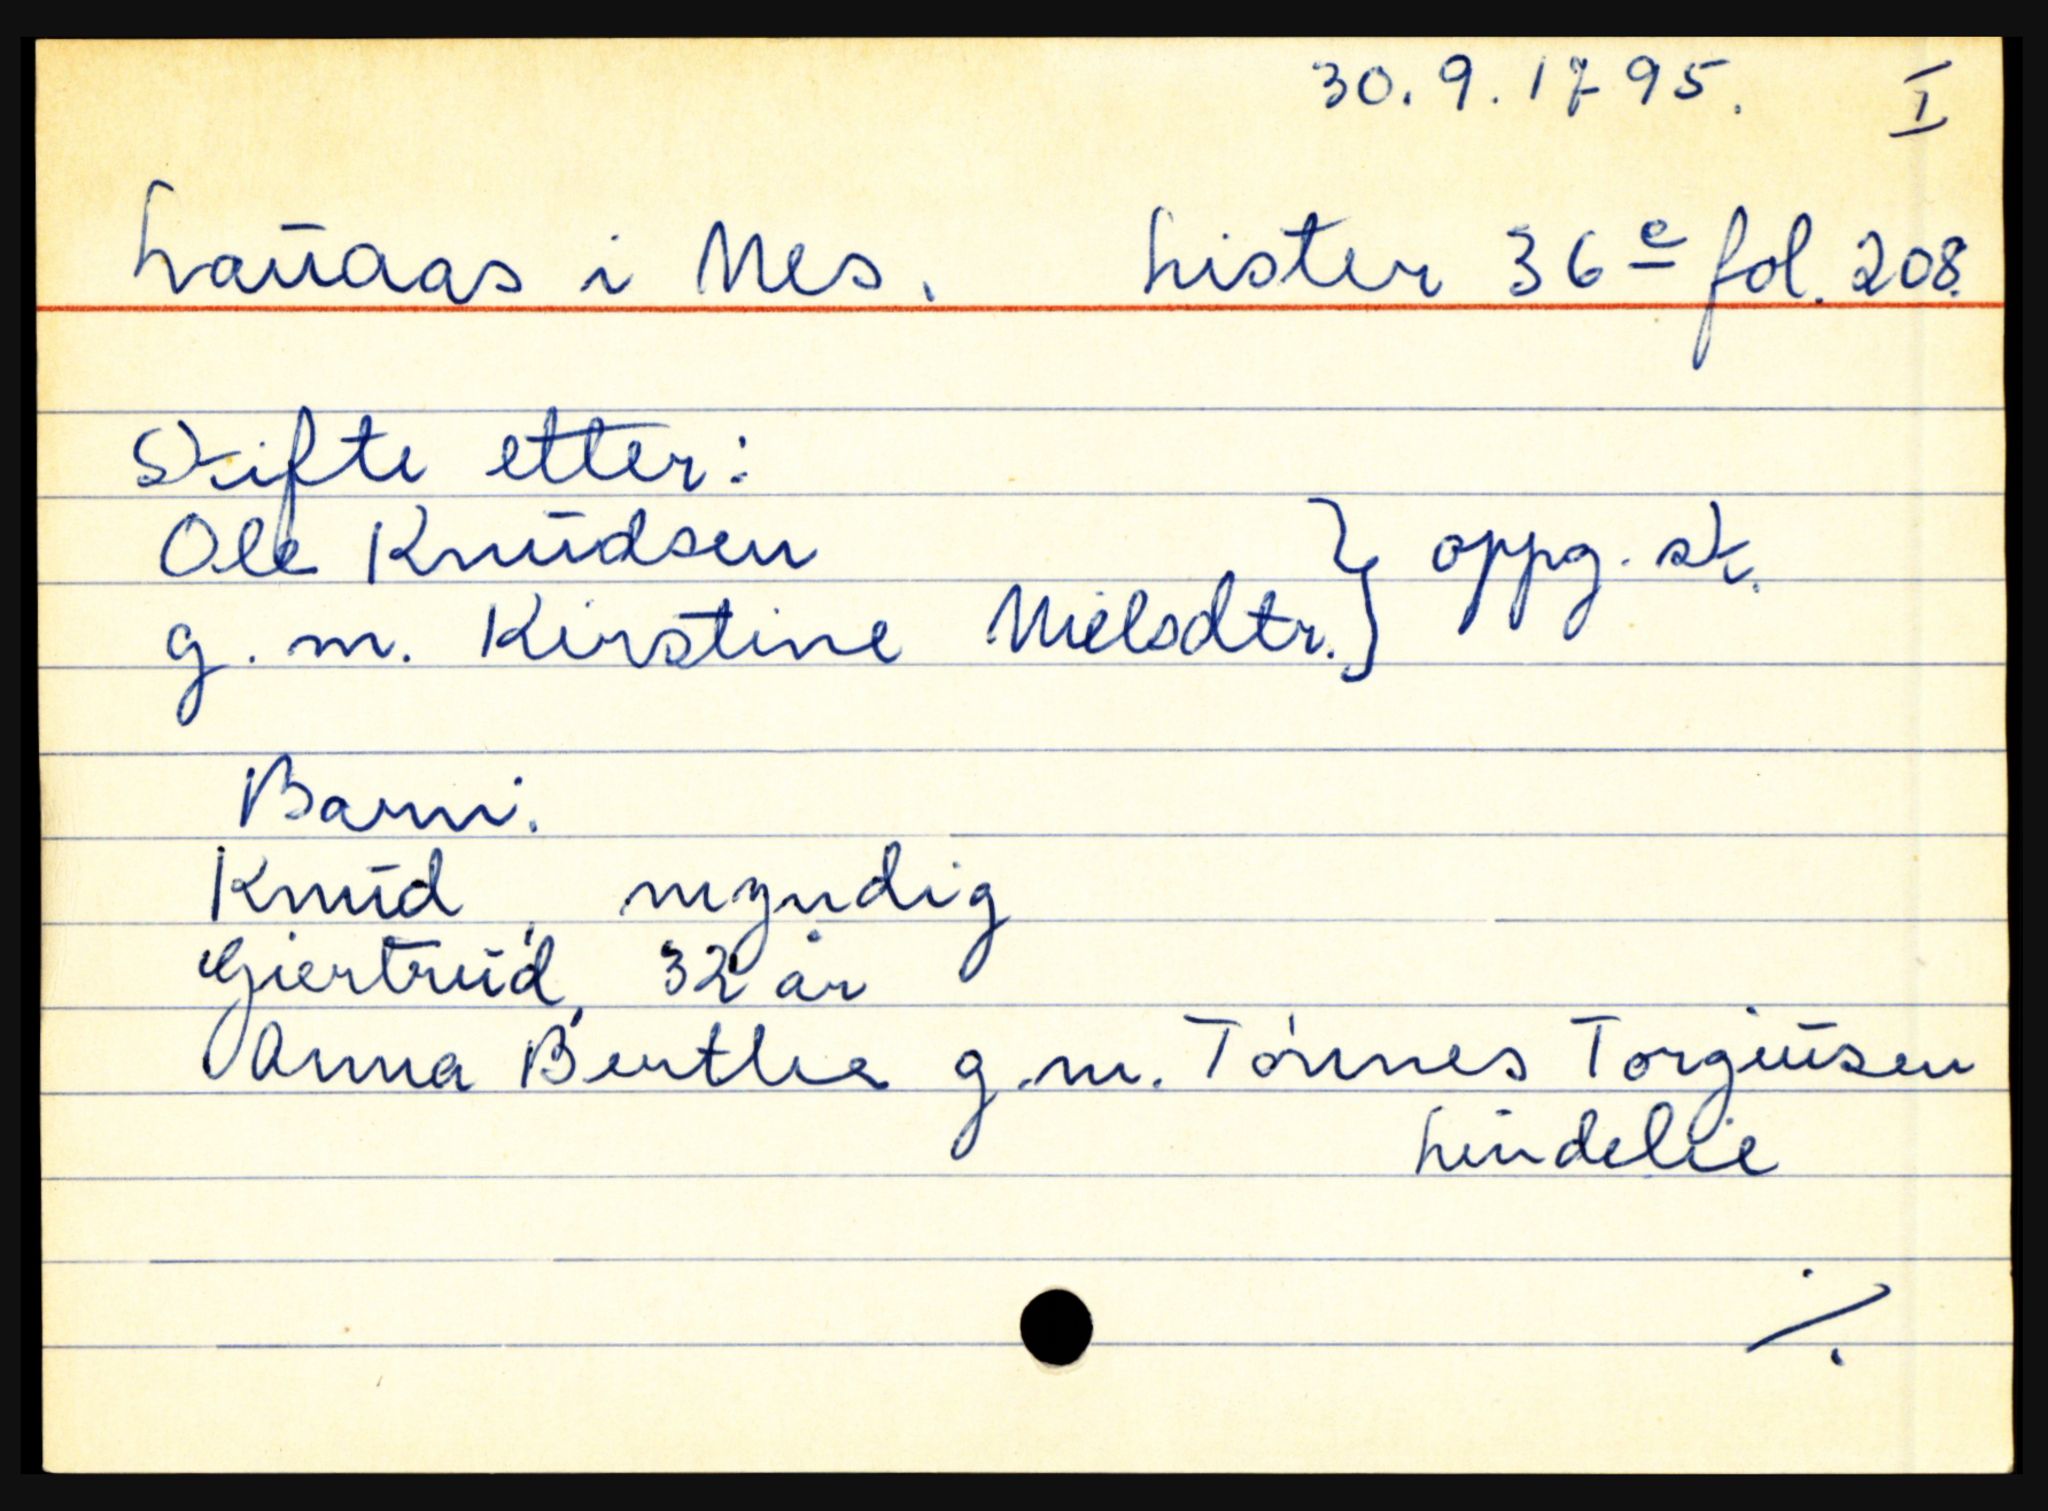 30.9.1795. I
Lauaas i Nes. Lister 36e fol. 208.
Skifte etter:
Ole Knudsen } oppg. sk.
g. m. Kirstine Nielsdtr.
Barn:
Knud, myndig
Giertrud, 32 år
Anna Berthe g.m. Tønnes Torgiusen
Lindelie
./.